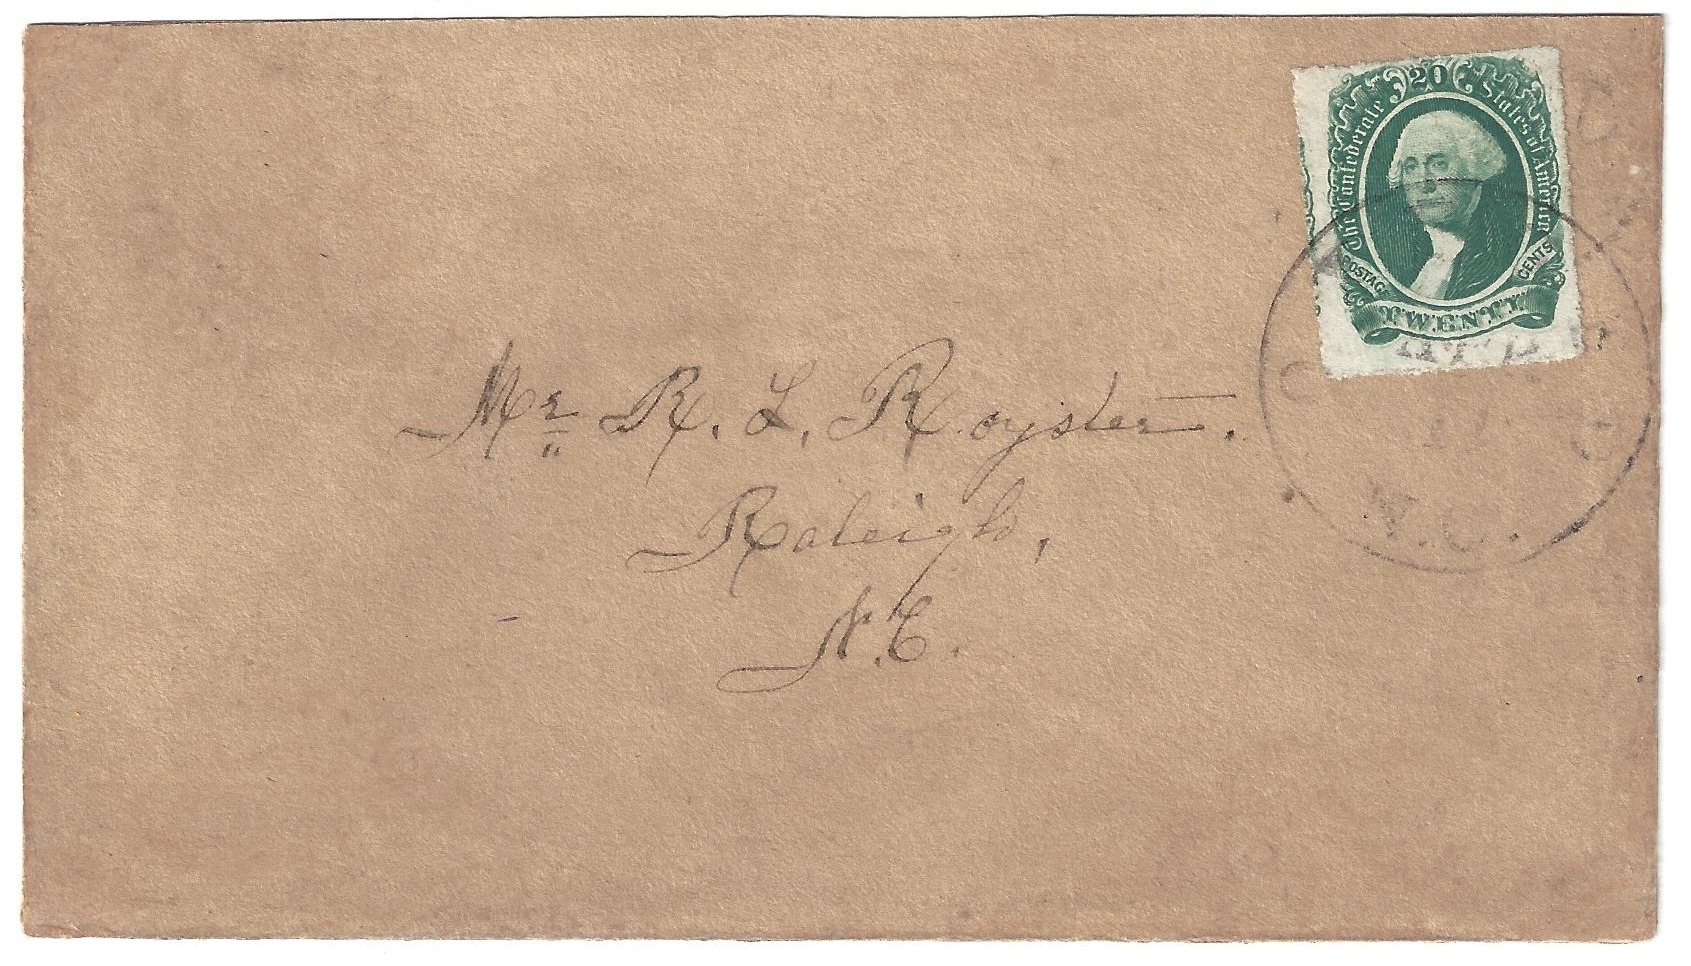 20
The Confederate States of America
POSTAGE CENTS
TWENTY
N.C.
Mr. R. L. Royster.
Raleigh,
N.C.